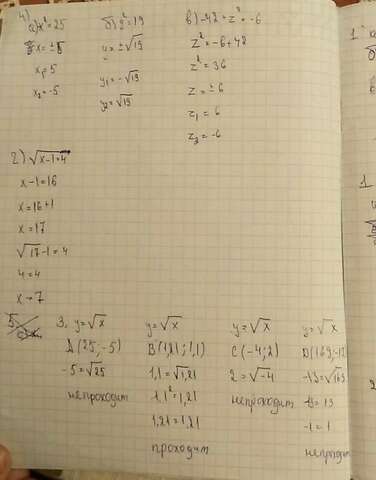 4)
а) x² = 25
x = ±5
x₁ = 5
x₂ = -5
б) z² = 19
u = ±√19
y₁ = -√19
y₂ = √19
в) -42 + z² = -6
z² = -6 + 42
z² = 36
z = ±6
z₁ = 6
z₂ = -6
2) √x-1 = 4
x - 1 = 16
x = 16 + 1
x = 17
√17 - 1 = 4
4 = 4
3. y = √x
A (25; -5)
-5 = √25
непроходит
y = √x
B (1,21; 1,1)
1,1 = √1,21
1.1² = 1,21
1,21 = 1,21
проходит
y = √x
C (-4; 2)
2 = √-4
непроходит
y = √x
-13 = 13
-1 = 1